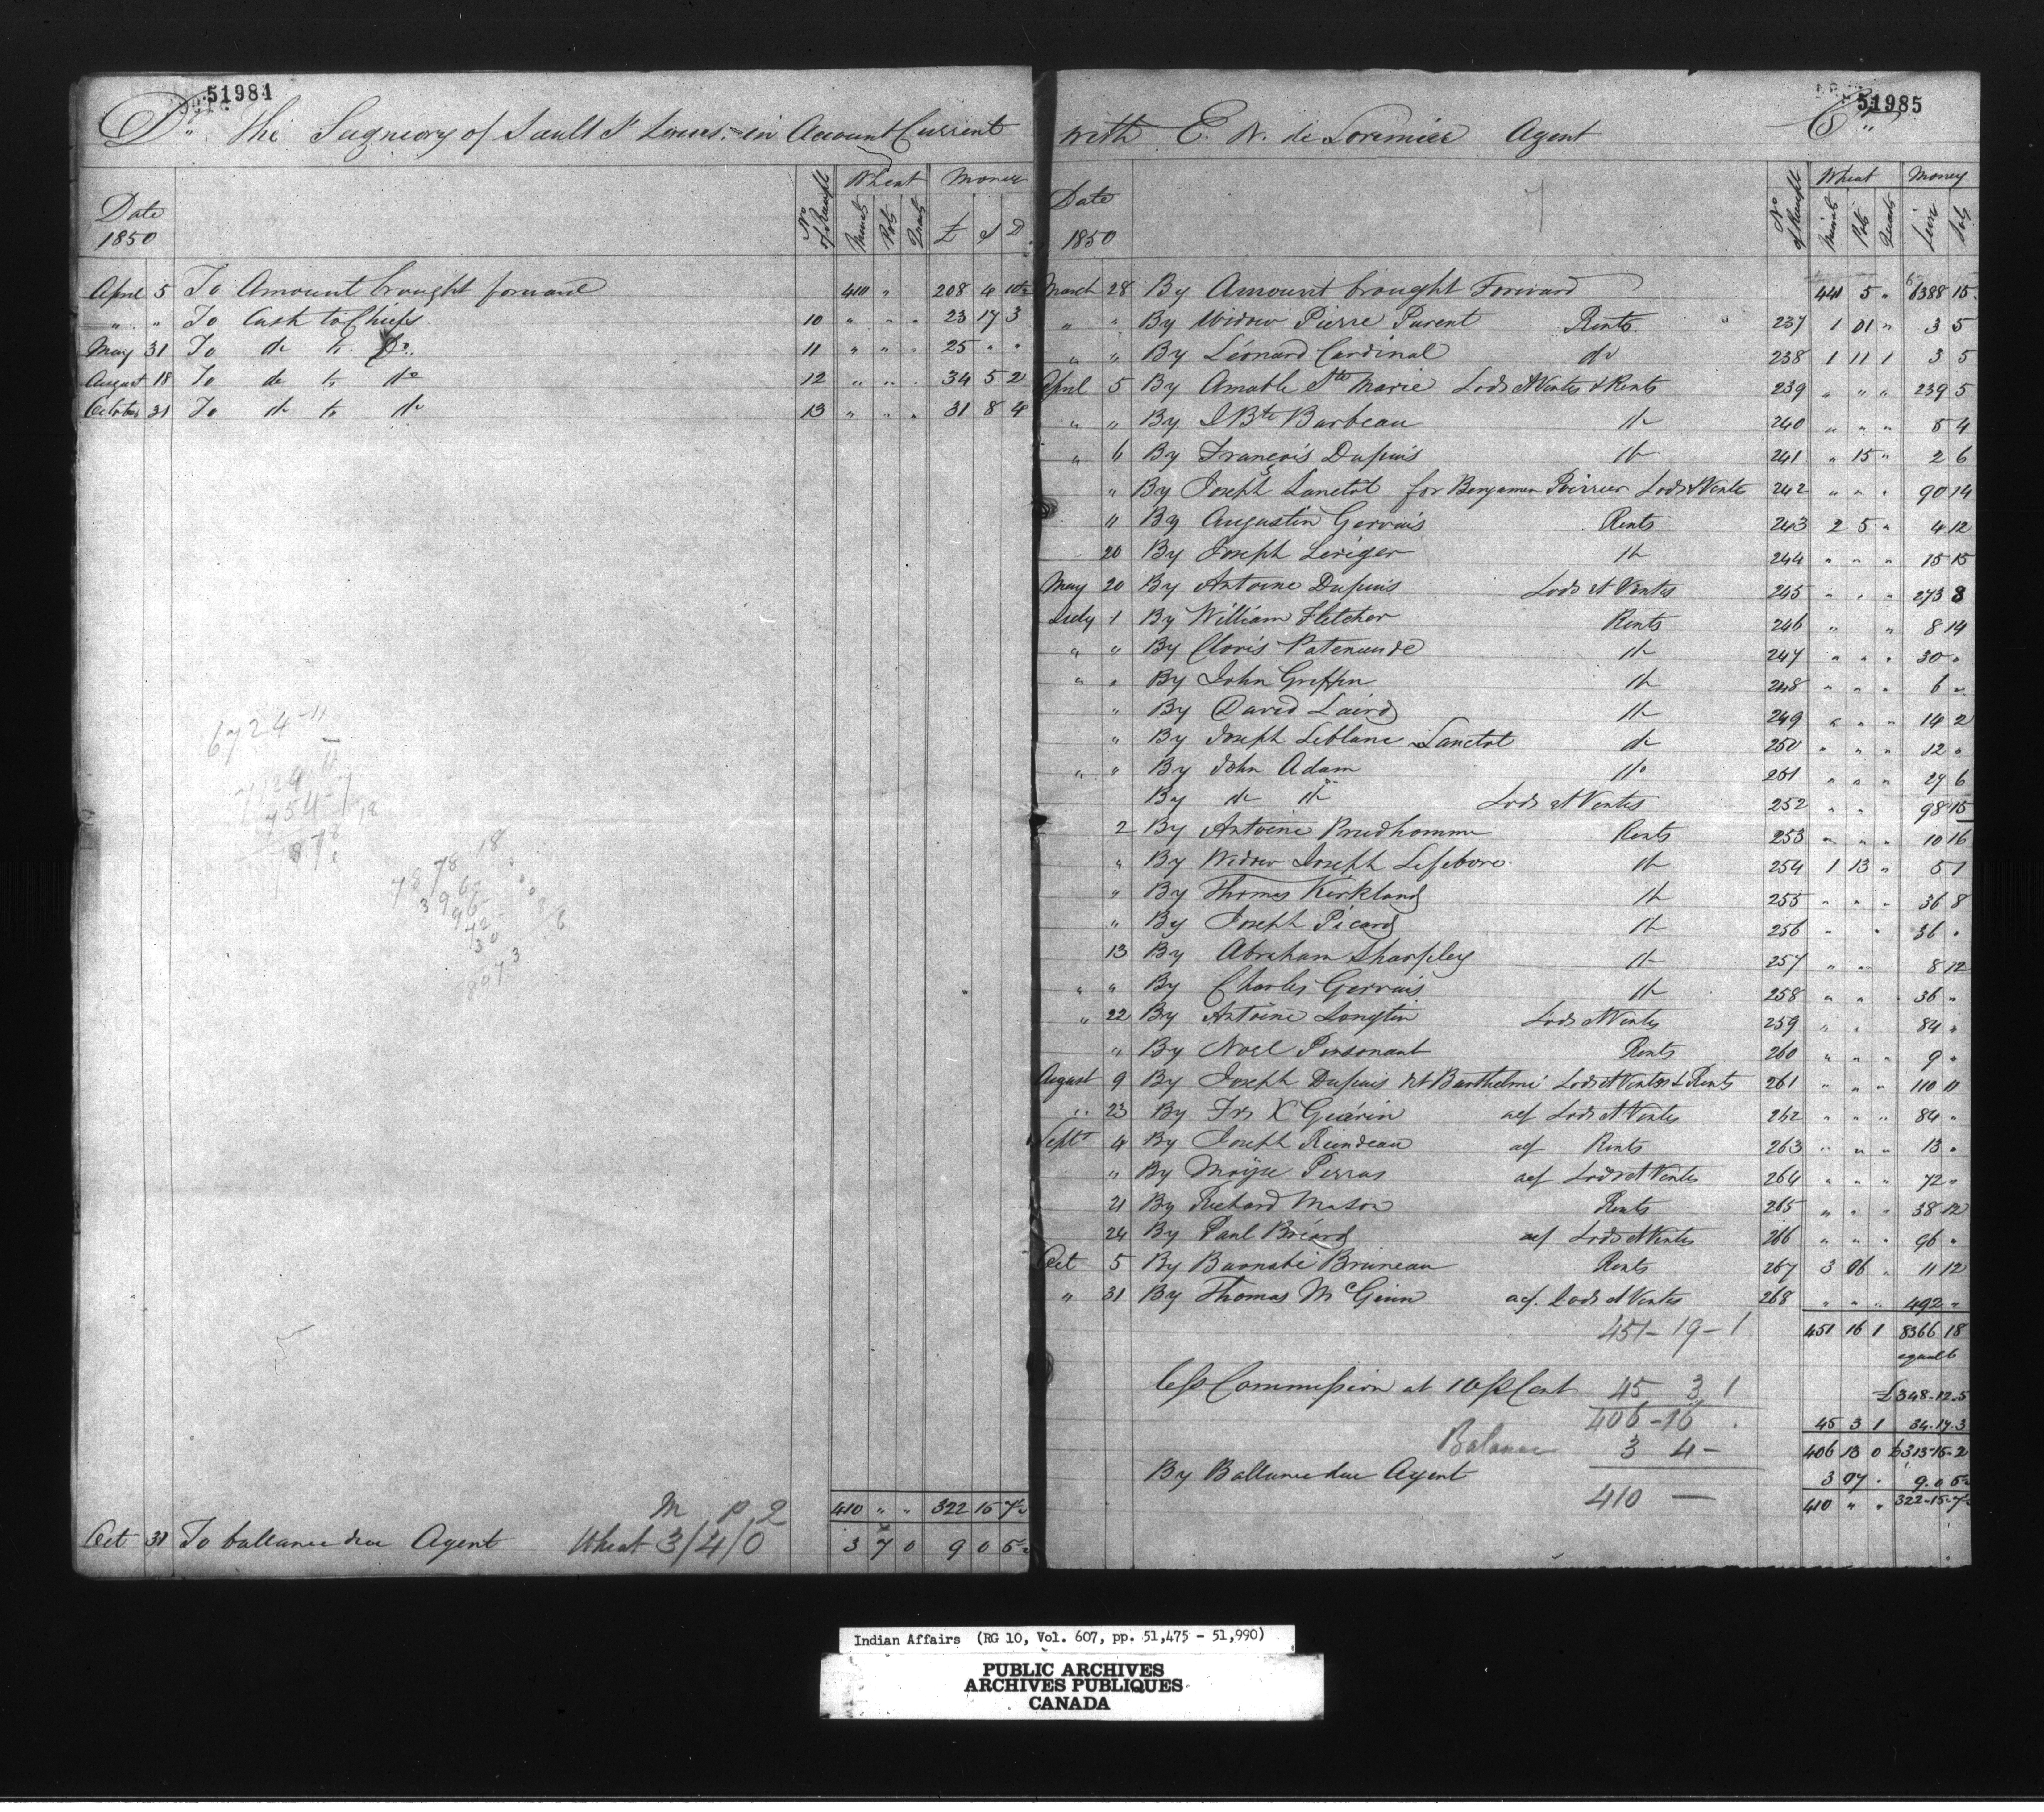 51984
Dr. The Signeory of Sault St Louis, in Account Current
Date 1850 No of Receipt Wheat Minots Pots Quarts Money £ S D
April 5 To Amount brought forward 410 " 208 4 10½
" " To Cash to Chiefs 10 " " " 23 17 3
May 31 To do to Do. 11 " " " 25 " "
August 18 To do to do 12 " " " 34 5 2
October 31 To do to do 13 " " " 31 8 4
6724-11
7878 18
396
96
72
30
8473
M P 2
410 " " 322 15 7½
Oct 31 To ballance due Agent Wheat 3/4/0 3 7 0 9 0 5½
51985
with E. N. de Lorimier Agent Cr.
Date 1850 No of Receipt Wheat Minots Pots Quarts Money Livre Sols
March 28 By Amount brought Forward 441 5 " 6388 15
" " By Widow Pierre Parent Rents 237 1 01 " 3 5
" " By Léonard Cardinal do 238 1 11 1 3 5
April 5 By Amable Ste Marie Lods et Ventes & Rents 239 " " " 239 5
" " By J Bte Barbeau do 240 " " " 5 4
" 6 By François Dupuis do 241 " 15 " 2 6
" By Joseph Lanctot for Benjamen Poirrier Lods et Ventes 242 " " " 90 14
" By Augustin Gervais Rents 243 2 5 " 4 12
20 By Joseph Leriger do 244 " " " 15 15
May 20 By Antoine Dupuis Lods et Ventes 245 " " " 273 8
July 1 By William Fletcher Rents 246 " " 8 14
" " By Cloris Patenaude do 247 " " " 30 "
" " By John Griffin do 248 " " " 6 "
" By David Laird do 249 " " " 14 2
" By Joseph Leblanc Lanctot do 250 " " " 12 "
" " By John Adam do 251 " " " 29 6
By do do Lods et Ventes 252 " " 98 15
2 By Antoine Prudhomme Rents 253 " " " 10 16
" By Widow Joseph Lefebvre do 254 1 13 " 5 1
" By Thomas Kirkland do 255 " " " 36 8
" By Joseph Picard do 256 " " 36 "
13 By Abraham Sharpley do 257 " " 8 12
" " By Charles Gervais do 258 " " " 36 "
" 22 By Antoine Longtin Lods et Ventes 259 " " 84 "
" By Noel Pinsonault Rents 260 " " " 9 "
August 9 By Joseph Dupuis dit Barthelmi Lods et Ventes & Rents 261 " " " 110 11
" 23 By Frs X Guérin acf Lods et Ventes 262 " " " 84 "
Septr 4 By Joseph Riendeau acf Rents 263 " " " 13 "
" By Moÿse Perras acf Lods et Ventes 264 " " " 72 "
21 By Richard Mason Rents 265 " " " 38 12
24 By Paul Briard acf Lods et Ventes 266 " " " 96 "
Oct 5 By Barnabé Bruneau Rents 267 3 06 " 11 12
" 31 By Thomas McGinn acf. Lods et Ventes 268 " " " 492 "
451-19-1 451 16 1 8366 18
equal to
£348-12-5
less Commission at 10 p Cent 45 3 1 45 3 1 34-17-3
406-16 406 13 0 £313-15-2
Balance 3 4 -
By Ballance due Agent 3 07 . 9.0 5½
410 — 410 " " 322-15-7½
Indian Affairs (RG 10, Vol. 607, pp. 51,475 - 51,990)
PUBLIC ARCHIVES
ARCHIVES PUBLIQUES
CANADA